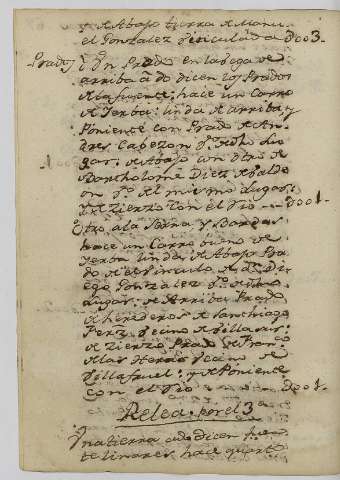 de Abajo tierra de Manu
el Gonzalez Vinculada Doo3.
Prados Un Prado en la Vega de
arriba q̃ do dicen los Prados
de la fuente: hace un Carro
de Yerba: linda de arriba y
Poniente con Prado de An
dres Cabezon Vº. dho. Lu
gar: de Abajo con otro de
Bartholome Diez
Vº. del mismo Lugar:
del Zierzo con el Rio Doo1.
Otro a la Serna y Bardas
hace un Carro bueno de
Yerba linda de Abajo Pra
do de el Vinculo de Dn. Di
ego Gonzalez Vº. de dho
Lugar: de Arriba Prado
de herederos de Santhiago
Perz Vecino de Villa
de Zierzo Prado de Franco
de las Heras Vecino de
Villa: y de Poniente
con el Rio Doo1.
Relea. por el 3º
Yna tierra a do dicen fuen
te linares hace quarto